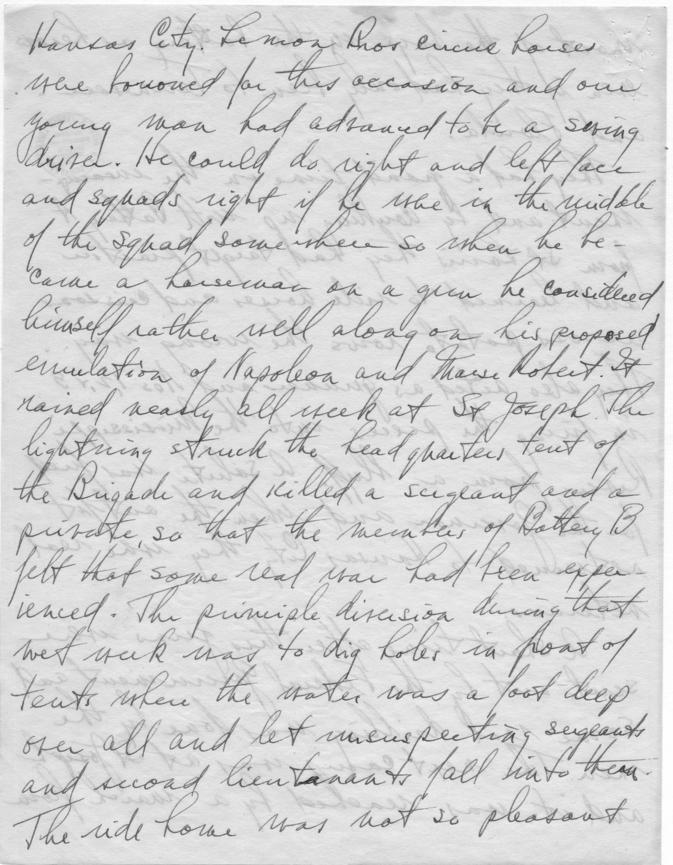 Kansas City. Lemon Bros circus horses
were borrowed for this occasion and our
young man had advanced to be a swing
driver. He could do right and left face
and squads right if he were in the middle
of the squad somewhere so when he be-
came a horseman on a gun he considered
himself rather well along on his proposed
emulation of Napoleon and Marse Robert. It
rained nearly all week at St Joseph. The
lightning struck the headquarters tent of
the Brigade and killed a sergeant and a
private, so that the members of Battery B
felt that some real war had been exper-
ienced. The principle diversion during that
wet week was to dig holes in front of
tents when the water was a foot deep
over all and let unsuspecting sergeants
and second lieutanants fall into them.
The ride home was not so pleasant